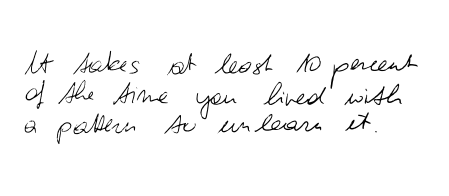 It takes at least 10 percent
of the time you lived with
a pattern to unlearn it.